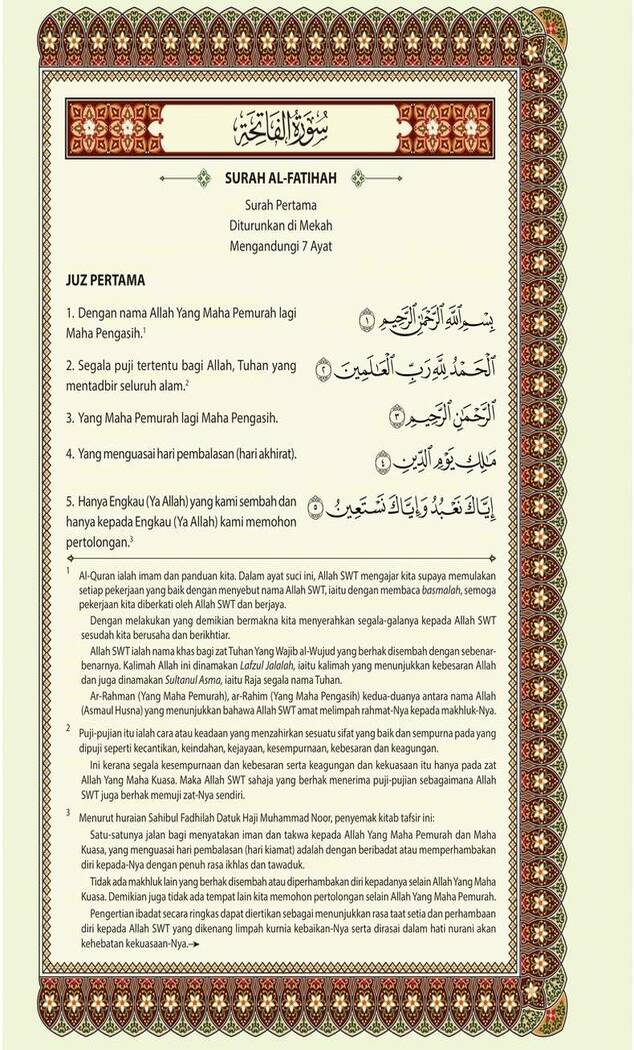 سُورَةُ الْفَاتِحَةِ
SURAH AL-FATIHAH
Surah Pertama
Diturunkan di Mekah
Mengandungi 7 Ayat
JUZ PERTAMA
1. Dengan nama Allah Yang Maha Pemurah lagi
Maha Pengasih.¹
بِسْمِ ٱللَّهِ ٱلرَّحْمَٰنِ ٱلرَّحِيمِ ١
2. Segala puji tertentu bagi Allah, Tuhan yang
mentadbir seluruh alam.²
ٱلْحَمْدُ لِلَّهِ رَبِّ ٱلْعَٰلَمِينَ ٢
3. Yang Maha Pemurah lagi Maha Pengasih.
ٱلرَّحْمَٰنِ ٱلرَّحِيمِ ٣
4. Yang menguasai hari pembalasan (hari akhirat).
مَٰلِكِ يَوْمِ ٱلدِّينِ ٤
5. Hanya Engkau (Ya Allah) yang kami sembah dan
hanya kepada Engkau (Ya Allah) kami memohon
pertolongan.³
إِيَّاكَ نَعْبُدُ وَإِيَّاكَ نَسْتَعِينُ ٥
1 Al-Quran ialah imam dan panduan kita. Dalam ayat suci ini, Allah SWT mengajar kita supaya memulakan
setiap pekerjaan yang baik dengan menyebut nama Allah SWT, iaitu dengan membaca basmalah, semoga
pekerjaan kita diberkati oleh Allah SWT dan berjaya.
Dengan melakukan yang demikian bermakna kita menyerahkan segala-galanya kepada Allah SWT
sesudah kita berusaha dan berikhtiar.
Allah SWT ialah nama khas bagi zat Tuhan Yang Wajib al-Wujud yang berhak disembah dengan sebenar-
benarnya. Kalimah Allah ini dinamakan Lafzul Jalalah, iaitu kalimah yang menunjukkan kebesaran Allah
dan juga dinamakan Sultanul Asma, iaitu Raja segala nama Tuhan.
Ar-Rahman (Yang Maha Pemurah), ar-Rahim (Yang Maha Pengasih) kedua-duanya antara nama Allah
(Asmaul Husna) yang menunjukkan bahawa Allah SWT amat melimpah rahmat-Nya kepada makhluk-Nya.
2 Puji-pujian itu ialah cara atau keadaan yang menzahirkan sesuatu sifat yang baik dan sempurna pada yang
dipuji seperti kecantikan, keindahan, kejayaan, kesempurnaan, kebesaran dan keagungan.
Ini kerana segala kesempurnaan dan kebesaran serta keagungan dan kekuasaan itu hanya pada zat
Allah Yang Maha Kuasa. Maka Allah SWT sahaja yang berhak menerima puji-pujian sebagaimana Allah
SWT juga berhak memuji zat-Nya sendiri.
3 Menurut huraian Sahibul Fadhilah Datuk Haji Muhammad Noor, penyemak kitab tafsir ini:
Satu-satunya jalan bagi menyatakan iman dan takwa kepada Allah Yang Maha Pemurah dan Maha
Kuasa, yang menguasai hari pembalasan (hari kiamat) adalah dengan beribadat atau memperhambakan
diri kepada-Nya dengan penuh rasa ikhlas dan tawaduk.
Tidak ada makhluk lain yang berhak disembah atau diperhambakan diri kepadanya selain Allah Yang Maha
Kuasa. Demikian juga tidak ada tempat lain kita memohon pertolongan selain Allah Yang Maha Pemurah.
Pengertian ibadat secara ringkas dapat diertikan sebagai menunjukkan rasa taat setia dan perhambaan
diri kepada Allah SWT yang dikenang limpah kurnia kebaikan-Nya serta dirasai dalam hati nurani akan
kehebatan kekuasaan-Nya.➔